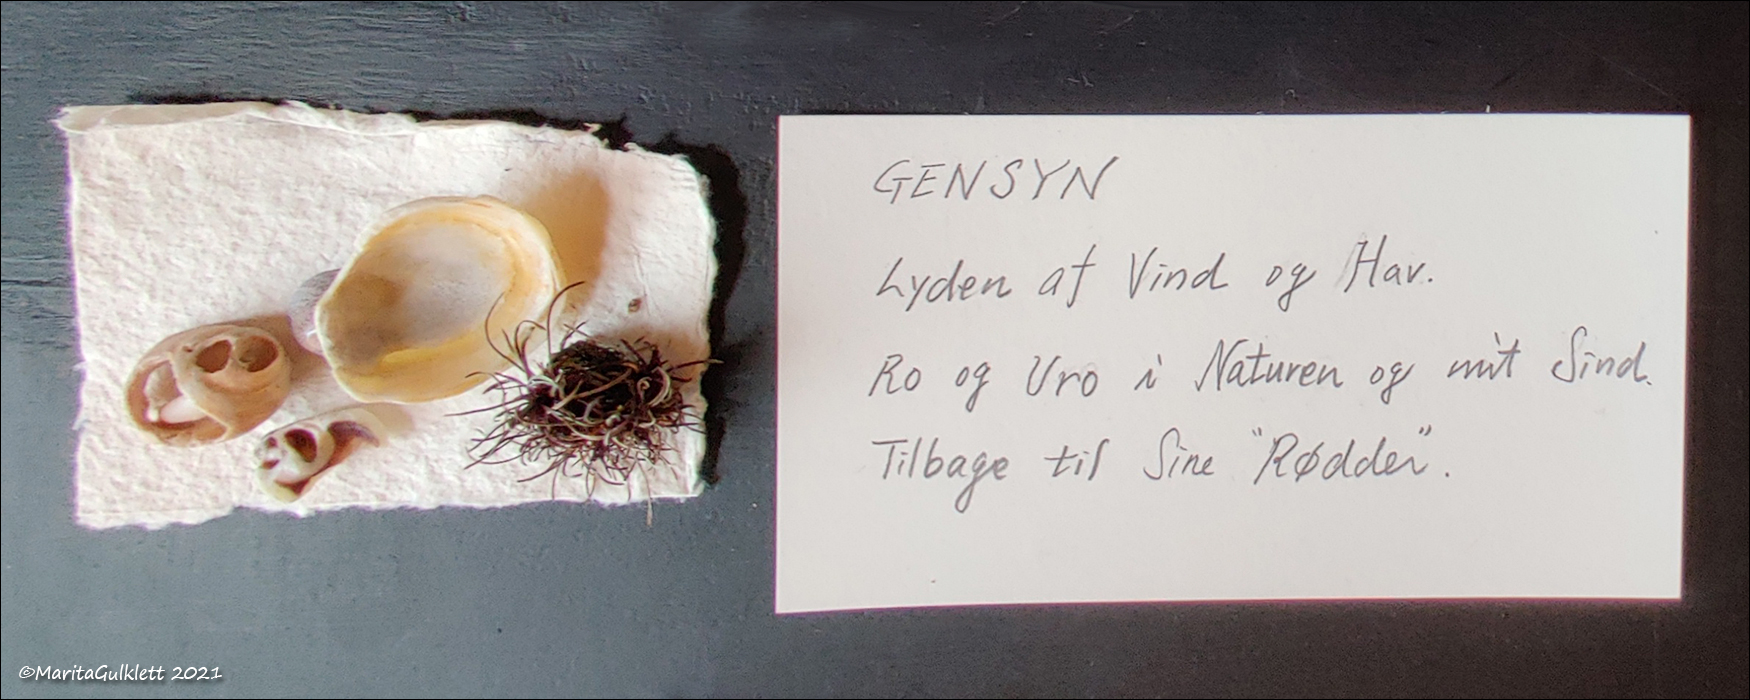 GENSYN
Lyden af Vind og Hav.
Ro og Uro i Naturen og mit Sind.
Tilbage til Sine "Rødder".
©MaritaGulklett 2021